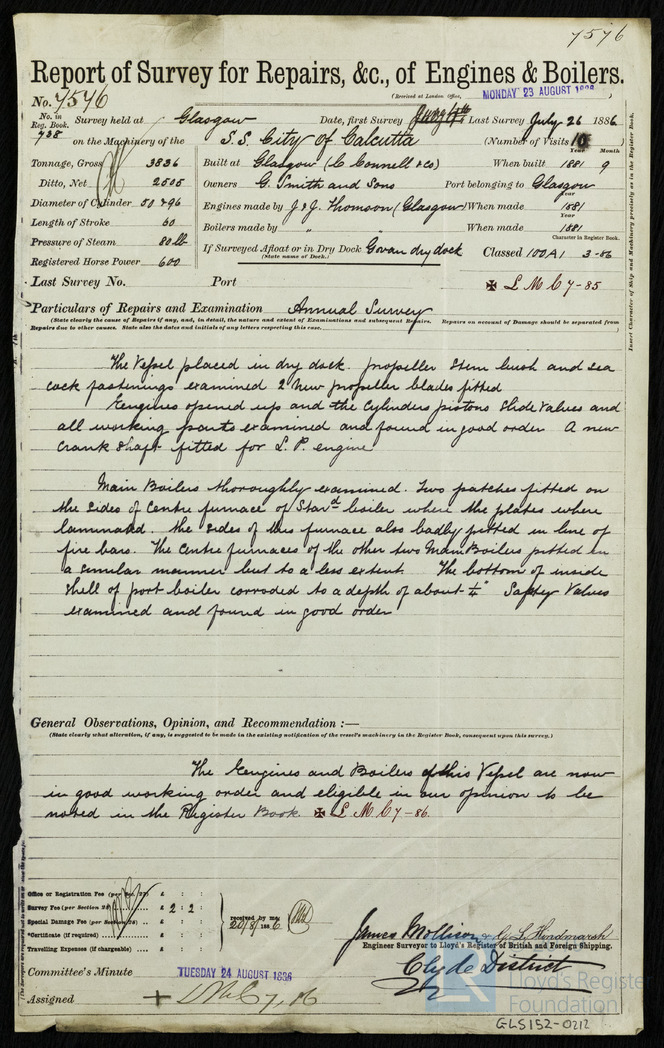 7576
Report of Survey for Repairs, &c., of Engines & Boilers.
(Received at London Office, MONDAY 23 AUGUST 1886 )
No. 7576
No. in Reg. Book. 738 Survey held at Glasgow Date, first Survey Last Survey July 26 1886
on the Machinery of the S.S. City of Calcutta (Number of Visits 10 )
Tonnage, Gross 3836 Built at Glasgow (C Connell & Co) When built Year 1881 Month 9
Ditto, Net 2505 Owners G. Smith and Sons Port belonging to Glasgow
Diameter of Cylinder 50 & 96 Engines made by J & J. Thomson (Glasgow) When made Year 1881
Length of Stroke 60 Boilers made by " " When made Year 1881
Pressure of Steam 80 lb If Surveyed Afloat or in Dry Dock Govan dry dock Classed 100A1 3-86
(State name of Dock.) Character in Register Book.
Registered Horse Power 600
Last Survey No. Port ✠ L M C 7-85
Particulars of Repairs and Examination Annual Survey
(State clearly the cause of Repairs if any, and, in detail, the nature and extent of Examinations and subsequent Repairs. Repairs on account of Damage should be separated from
Repairs due to other causes. State also the dates and initials of any letters respecting this case.)
Insert Character of Ship and Machinery precisely as in the Register Book.
The Vessel placed in dry dock. propeller stern bush and sea
cock fastenings examined 2 new propeller blades fitted
Engines opened up and the Cylinders pistons Slide Valves and
all working parts examined and found in good order A new
crank shaft fitted for L.P. engine
Main Boilers thoroughly examined. Two patches fitted on
the sides of Centre furnace of Stard boiler where the plates where
laminated. the sides of this furnace also badly pitted in line of
fire bars. The Centre furnaces of the other two Main Boilers pitted in
a similar manner but to a less extent The bottom of inside
shell of port boiler corroded to a depth of about 1/4" Safety Valves
examined and found in good order
General Observations, Opinion, and Recommendation :—
(State clearly what alteration, if any, is suggested to be made in the existing notification of the vessel's machinery in the Register Book, consequent upon this survey.)
The Engines and Boilers of this Vessel are now
in good working order and eligible in our opinion to be
noted in the Register Book ✠ L M C 7-86.
Office or Registration Fee (per Sec. 27) £ : :
Survey Fee (per Section 28) £ 2 : 2 :
Special Damage Fee (per Section 28) £ : :
*Certificate (if required) £ : :
Travelling Expenses (if chargeable) £ : :
received by me, 20/8/1886.
James Mollison & G. L. Hindmarsh
Engineer Surveyor to Lloyd's Register of British and Foreign Shipping.
Clyde District
Committee's Minute TUESDAY 24 AUGUST 1886
Assigned + LMC 7,86
LR Lloyd's Register
Foundation
GLS152-0212